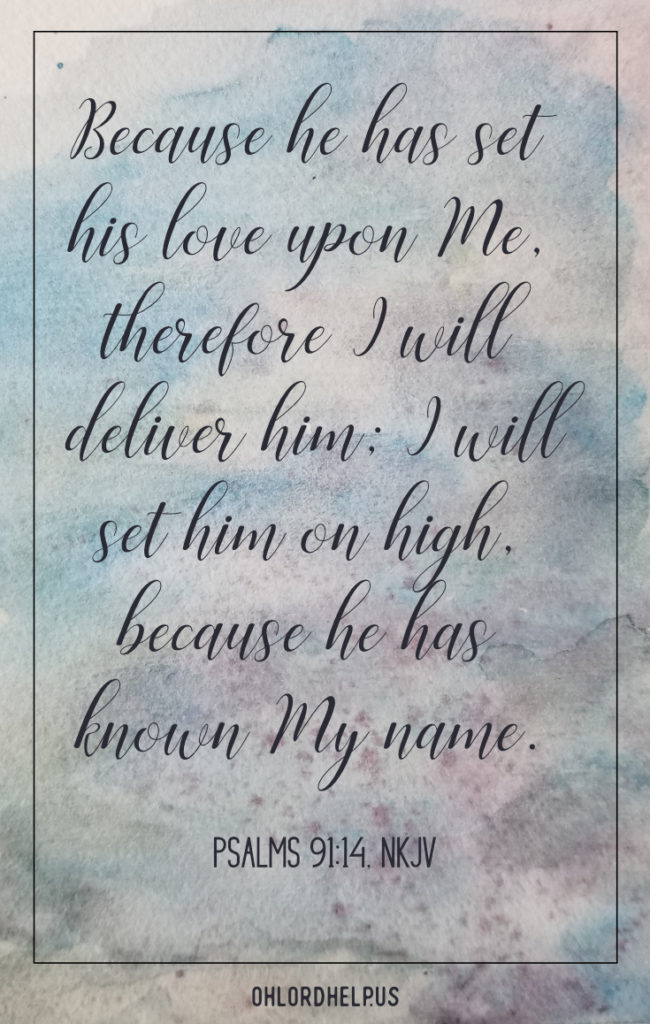 Because he has set
his love upon Me,
therefore I will
deliver him; I will
set him on high,
because he has
known My name.
PSALMS 91:14, NKJV
OHLORDHELP.US